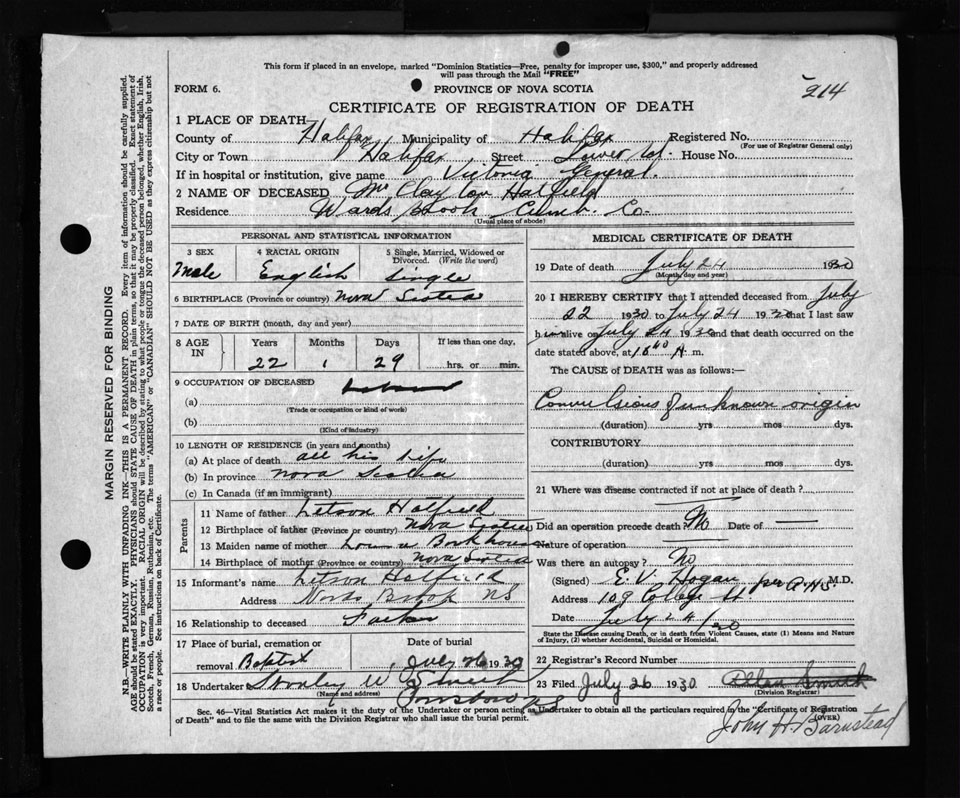 This form if placed in an envelope, marked "Dominion Statistics—Free, penalty for improper use, $300," and properly addressed
will pass through the Mail "FREE"
FORM 6.
PROVINCE OF NOVA SCOTIA
214
CERTIFICATE OF REGISTRATION OF DEATH
1 PLACE OF DEATH
County of Halifax Municipality of Halifax Registered No.
(For use of Registrar General only)
City or Town Halifax Street Tower Rd. House No.
If in hospital or institution, give name Victoria General.
2 NAME OF DECEASED Mr Clayton Hatfield
Residence Wards Brook Cumb. Co.
(Usual place of abode)
PERSONAL AND STATISTICAL INFORMATION
3 SEX 4 RACIAL ORIGIN 5 Single, Married, Widowed or
Divorced. (Write the word)
Male English Single
6 BIRTHPLACE (Province or country) Nova Scotia
7 DATE OF BIRTH (month, day and year)
8 AGE IN Years Months Days If less than one day,
22 1 29 hrs. or min.
9 OCCUPATION OF DECEASED
(a)
(Trade or occupation or kind of work)
(b)
(Kind of industry)
10 LENGTH OF RESIDENCE (in years and months)
(a) At place of death all his life
(b) In province Nova Scotia
(c) In Canada (if an immigrant)
Parents
11 Name of father Letson Hatfield
12 Birthplace of father (Province or country) Nova Scotia
13 Maiden name of mother Borkhouse
14 Birthplace of mother (Province or country) Nova Scotia
15 Informant's name Letson Hatfield
Address Wards Brook NS
16 Relationship to deceased Father
17 Place of burial, cremation or Date of burial
removal Baptist July 26 1930
18 Undertaker Stanley W
(Name and address)
Parrsboro NS
MEDICAL CERTIFICATE OF DEATH
19 Date of death July 24 1930
(Month, day and year)
20 I HEREBY CERTIFY that I attended deceased from July
22 1930 to July 24 1930 that I last saw
him alive on July 24 1930 and that death occurred on
the date stated above, at 10 40 A. m.
The CAUSE of DEATH was as follows:—
Convulsions of unknown origin
(duration) yrs mos dys.
CONTRIBUTORY
(duration) yrs. mos. dys.
21 Where was disease contracted if not at place of death?
Did an operation precede death? No Date of —
Nature of operation —
Was there an autopsy? No
(Signed) E. V. Hogan per A.H.S. M.D.
Address 109 College St.
Date July 24/30
State the Disease causing Death, or in death from Violent Causes, state (1) Means and Nature
of Injury, (2) whether Accidental, Suicidal or Homicidal.
22 Registrar's Record Number
23 Filed July 26 1930 Allan Smith
(Division Registrar)
Sec. 46—Vital Statistics Act makes it the duty of the Undertaker or person acting as Undertaker to obtain all the particulars required in the "Certificate of Registration
of Death" and to file the same with the Division Registrar who shall issue the burial permit.
(OVER)
John H. Barnstead
MARGIN RESERVED FOR BINDING
N.B.—WRITE PLAINLY WITH UNFADING INK—THIS IS A PERMANENT RECORD. Every item of information should be carefully supplied.
AGE should be stated EXACTLY. PHYSICIANS should STATE CAUSE OF DEATH in plain terms, so that it may be properly classified. Exact statement of
OCCUPATION is very important. RACIAL ORIGIN will be described by stating to what people or tongue the deceased person belonged, whether English, Irish,
Scotch, French, German, Russian, Ruthenian, etc. The terms "AMERICAN" or "CANADIAN" SHOULD NOT BE USED as they express citizenship but not
a race or people. See instructions on back of Certificate.